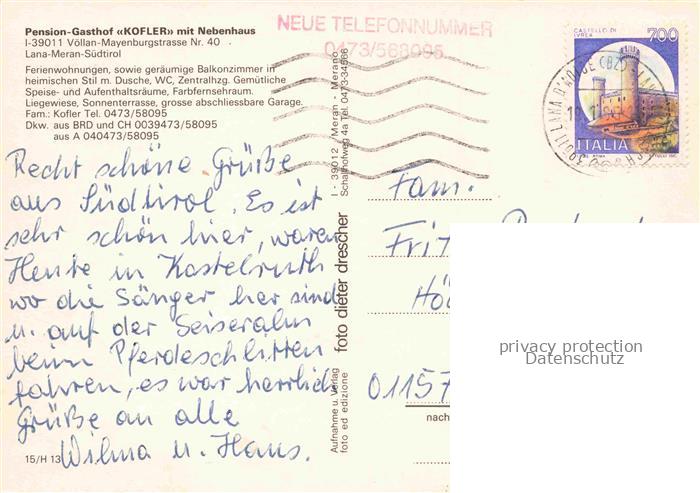 Pension-Gasthof «KOFLER» mit Nebenhaus
I-39011 Völlan-Mayenburgstrasse Nr. 40
Lana-Meran-Südtirol
Ferienwohnungen, sowie geräumige Balkonzimmer in
heimischen Stil m. Dusche, WC, Zentralhzg. Gemütliche
Speise- und Aufenthaltsräume, Farbfernsehraum.
Liegewiese, Sonnenterrasse, grosse abschliessbare Garage.
Fam.: Kofler Tel. 0473/58095
Dkw. aus BRD und CH 0039473/58095
aus A 040473/58095
NEUE TELEFONNUMMER
0473/568095
CASTELLO DI
IVREA
700
ITALIA
Recht schöne Grüße
aus Südtirol. Es ist
sehr schön hier, waren
Heute in Kastelruth
wo die Sänger her sind
u. auf der Seiseralm
beim Pferdeschlitten
fahren, es war herrlich
Grüße an alle
Wilma u. Hans.
15/H 13
Aufnahme u. Verlag
foto ed edizione
foto dieter drescher
I - 39012 - Meran - Merano
Schafhofweg 4a Tel. 0473-34566
Fam.
Frit
Hö
01157
nach
privacy protection
Datenschutz